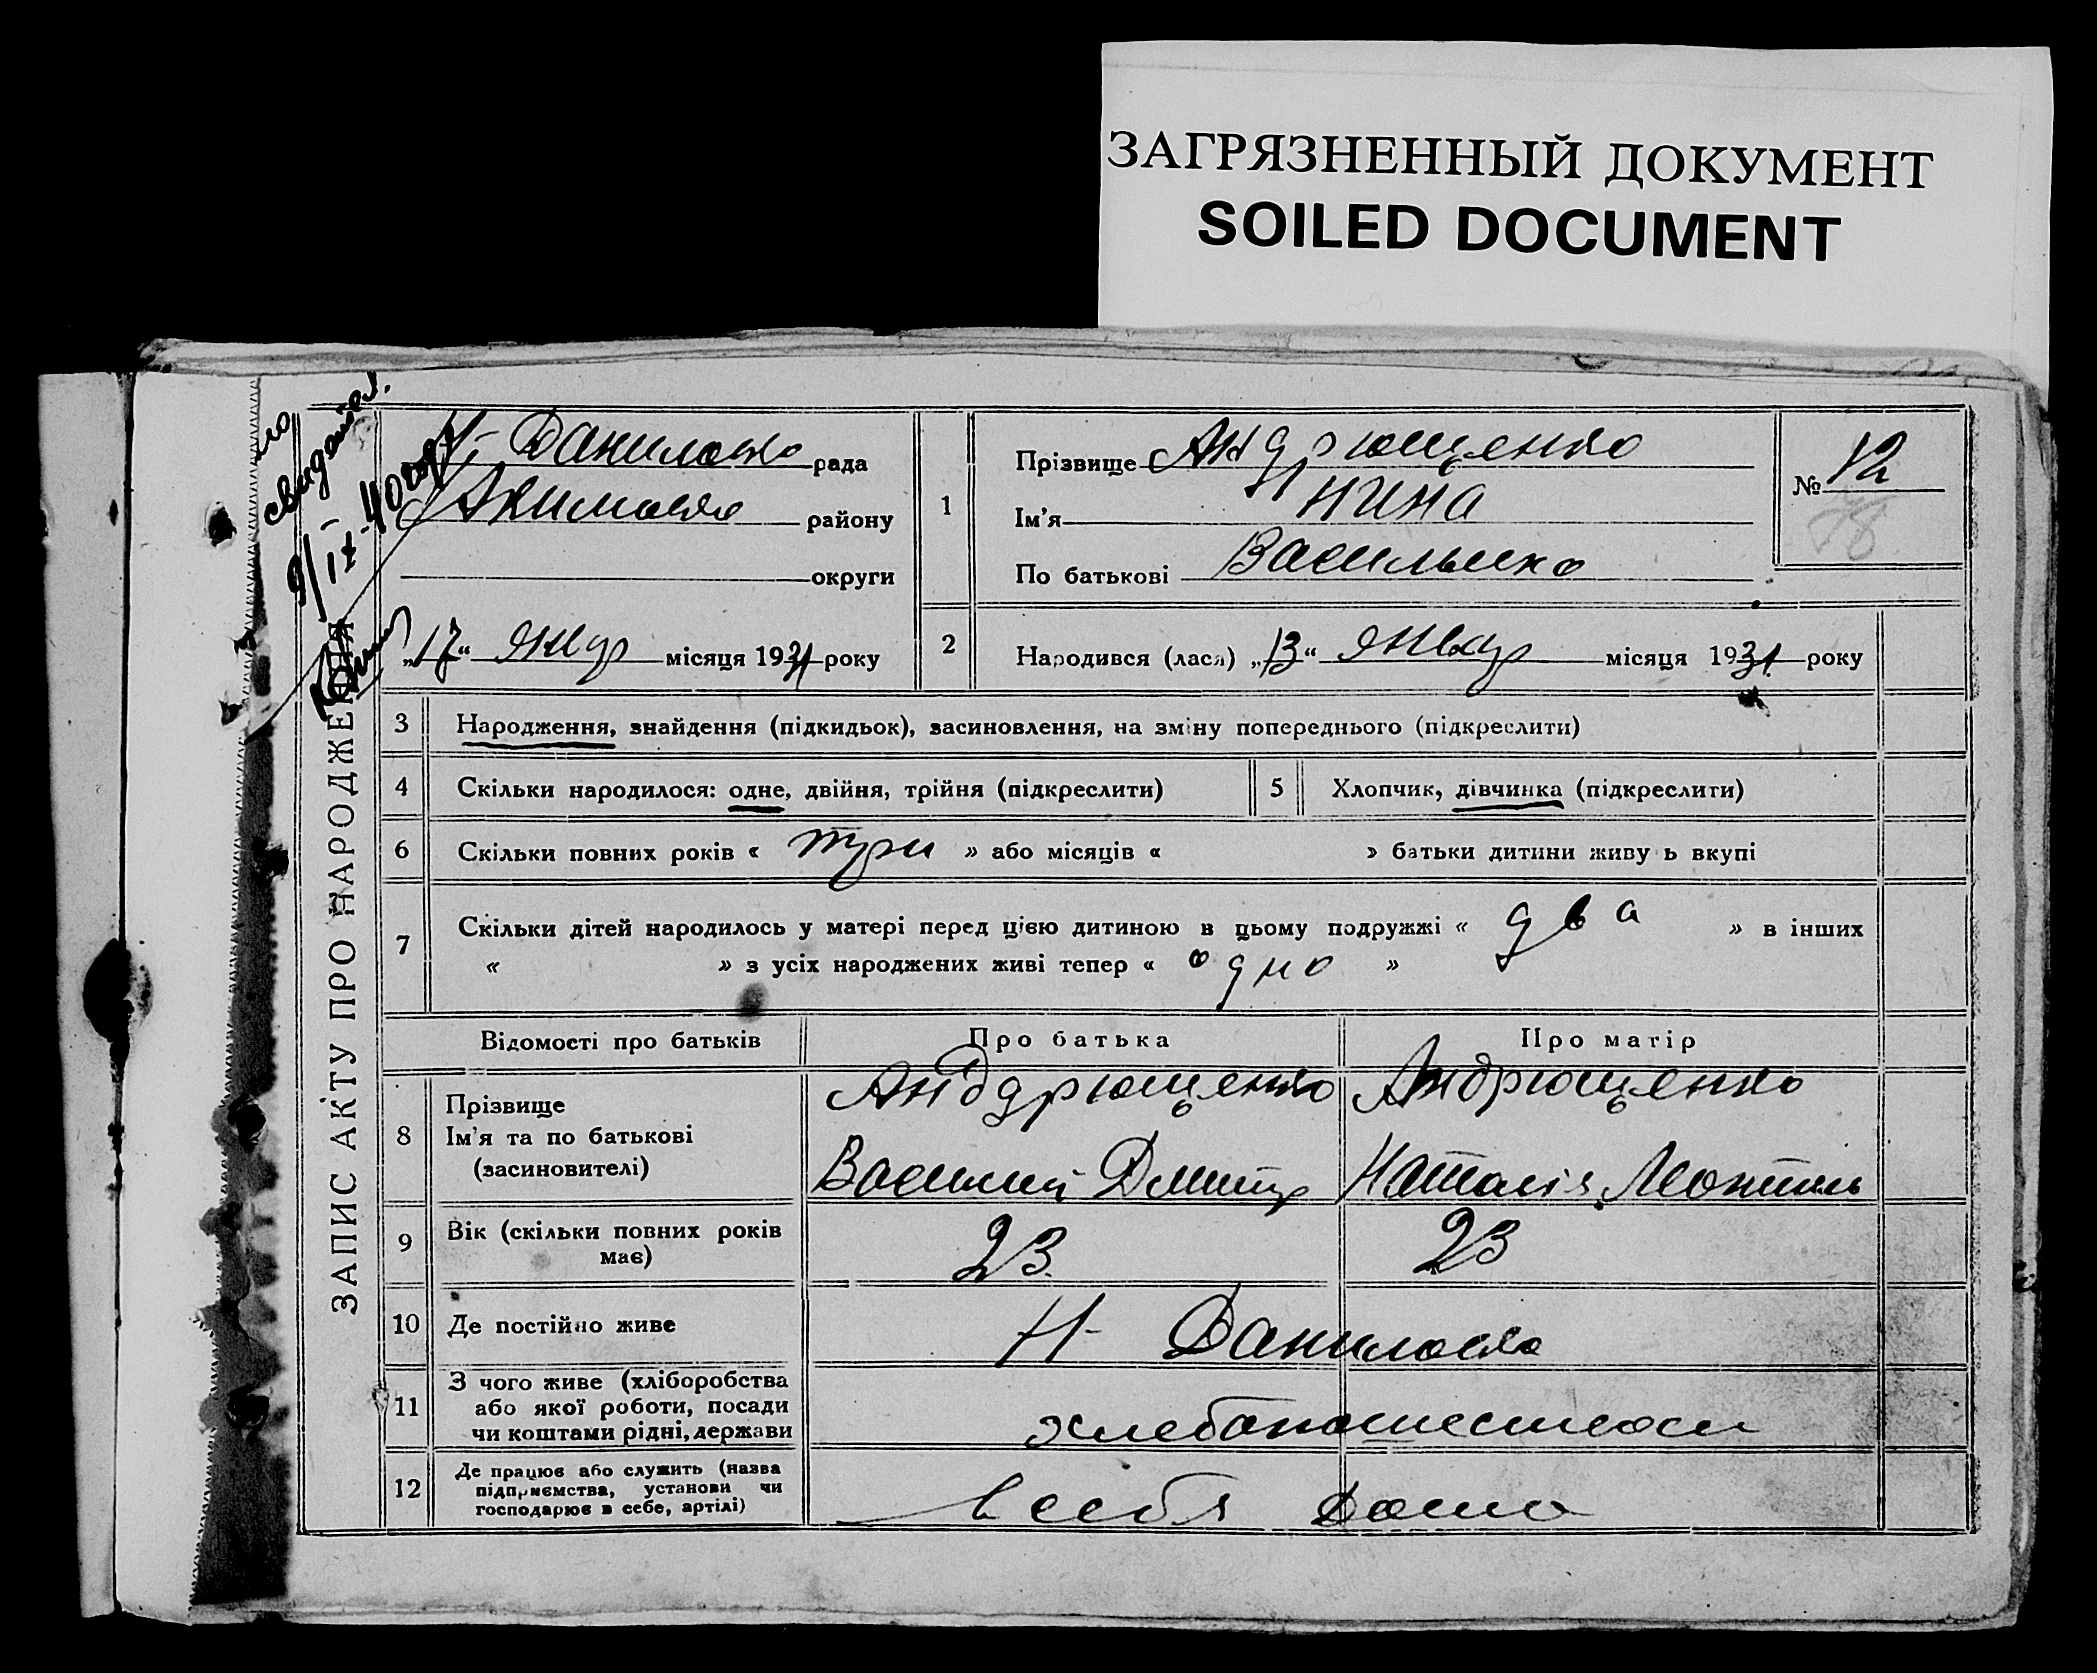 ЗАГРЯЗНЕННЫЙ ДОКУМЕНТ
SOILED DOCUMENT
свидетел.
9/IX-40
ЗАПИС АКТУ ПРО НАРОДЖЕННЯ
Н-Даниловка рада
Акимовка району
округи
„17“ январ місяця 1931 року
1
Прізвище Андрющенко
Ім'я Нина
По батькові Васильвна
№ 12
78
2
Народився (лася) „13“ январ місяця 1931 року
3 Народження, знайдення (підкидьок), засиновлення, на зміну попереднього (підкреслити)
4 Скільки народилося: одне, двійня, трійня (підкреслити)
5 Хлопчик, дівчинка (підкреслити)
6 Скільки повних років « три » або місяців « » батьки дитини живуть вкупі
7 Скільки дітей народилось у матері перед цією дитиною в цьому подружжі « два » в інших
« » з усіх народжених живі тепер « одно »
Відомості про батьків Про батька Про матір
8 Прізвище
Ім'я та по батькові
(засиновителі)
Андрющенко Андрющенко
Василий Дмитр Наталія Леонтиль
9 Вік (скільки повних років
має)
23. 23
10 Де постійно живе Н- Даниловка
11 З чого живе (хліборобства
або якої роботи, посади
чи коштами рідні, держави
хлебопашеством
12 Де працює або служить (назва
підприємства, установи чи
господарює в себе, артілі)
в себя дома